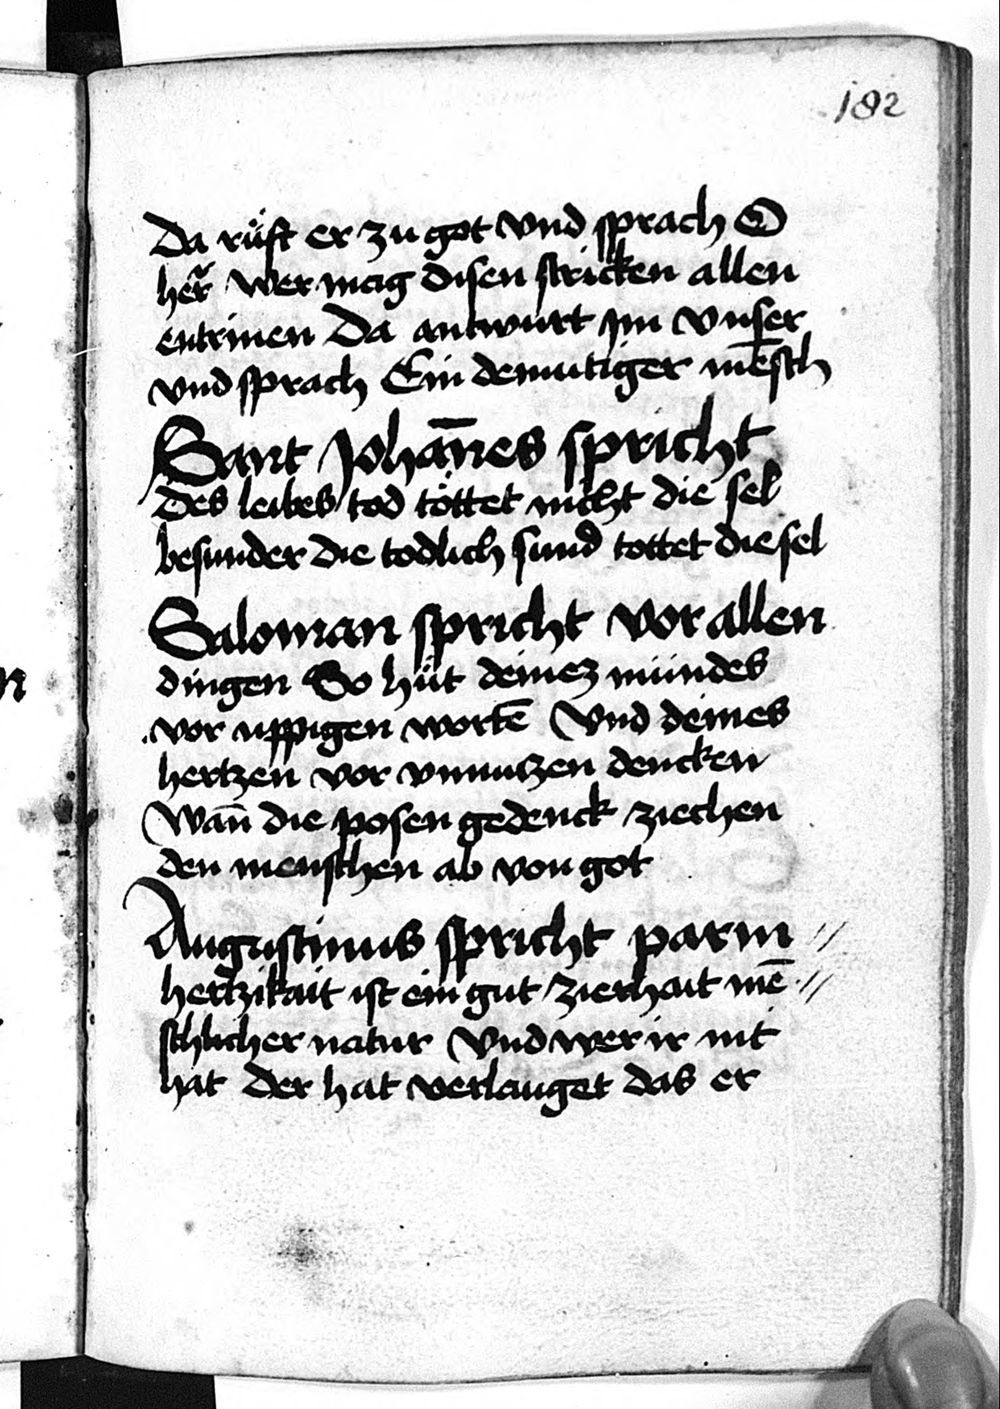 182
Da rüft er zu got vnd sprach O
her̃ wer mag disen stricken allen
entrinen Da antwurt jm vnser
vnd sprach Ein demutiger mēsch
Sant Johān̄es spricht
des leibes tod töttet nicht die sel
besunder die todlich sund tottet die sel
Saloman spricht vor allen
dingen So hüt deinez mundes
vor uppigen wortē Vnd deines
hertzen vor vnnutzen dencken
Wan̄ die posen gedenck ziechen
den menschen ab von got
Augustinus spricht parm //
hertzikait ist ein gut zierhait mē //
schlicher natur Vnd wer ir nit
hat Der hat verlauget das er